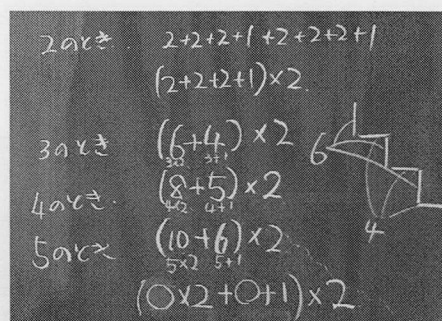 2のとき 2+2+2+1+2+2+2+1
(2+2+2+1)×2
3のとき (6+4)×2
3×2 3+1
4のとき (8+5)×2
4×2 4+1
5のとき (10+6)×2
5×2 5+1
(○×2+○+1)×2
6
4